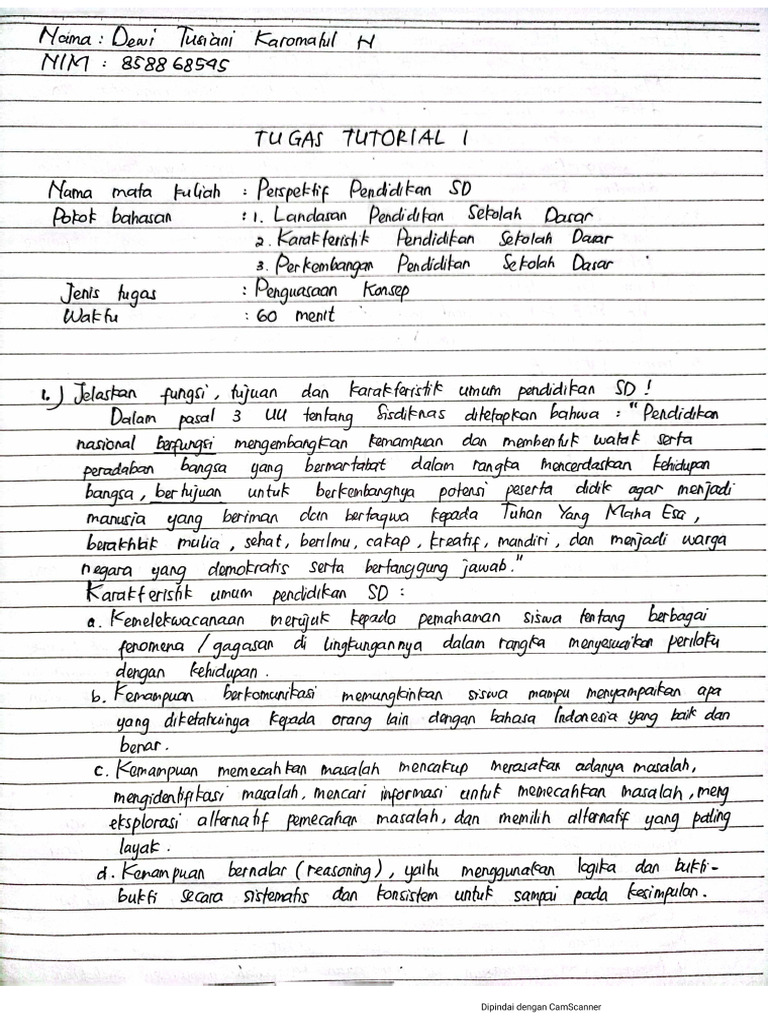 Nama : Dewi Tusiani Karomatul H
NIM : 858868545
TUGAS TUTORIAL 1
Nama mata kuliah : Perspektif Pendidikan SD
Pokok bahasan : 1. Landasan Pendidikan Sekolah Dasar
2. Karakteristik Pendidikan Sekolah Dasar
3. Perkembangan Pendidikan Sekolah Dasar
Jenis tugas : Penguasaan Konsep
Waktu : 60 menit
1.) Jelaskan fungsi, tujuan dan karakteristik umum pendidikan SD !
Dalam pasal 3 UU tentang Sisdiknas ditetapkan bahwa : "Pendidikan
nasional berfungsi mengembangkan kemampuan dan membentuk watak serta
peradaban bangsa yang bermartabat dalam rangka mencerdaskan kehidupan
bangsa, bertujuan untuk berkembangnya potensi peserta didik agar menjadi
manusia yang beriman dan bertaqwa kepada Tuhan Yang Maha Esa,
berakhlak mulia, sehat, berilmu, cakap, kreatif, mandiri, dan menjadi warga
negara yang demokratis serta bertanggung jawab."
Karakteristik umum pendidikan SD :
a. Kemelekwacanaan merujuk kepada pemahaman siswa tentang berbagai
fenomena / gagasan di lingkungannya dalam rangka menyesuaikan perilaku
dengan kehidupan.
b. Kemampuan berkomunikasi memungkinkan siswa mampu menyampaikan apa
yang diketahuinga kepada orang lain dengan bahasa Indonesia yang baik dan
benar.
c. Kemampuan memecahkan masalah mencakup merasakan adanya masalah,
mengidentifikasi masalah, mencari informasi untuk memecahkan masalah, meng
eksplorasi alternatif pemecahan masalah, dan memilih alternatif yang paling
layak.
d. Kemampuan bernalar (reasoning), yaitu menggunakan logika dan bukti-
bukti secara sistematis dan konsisten untuk sampai pada kesimpulan.
Dipindai dengan CamScanner